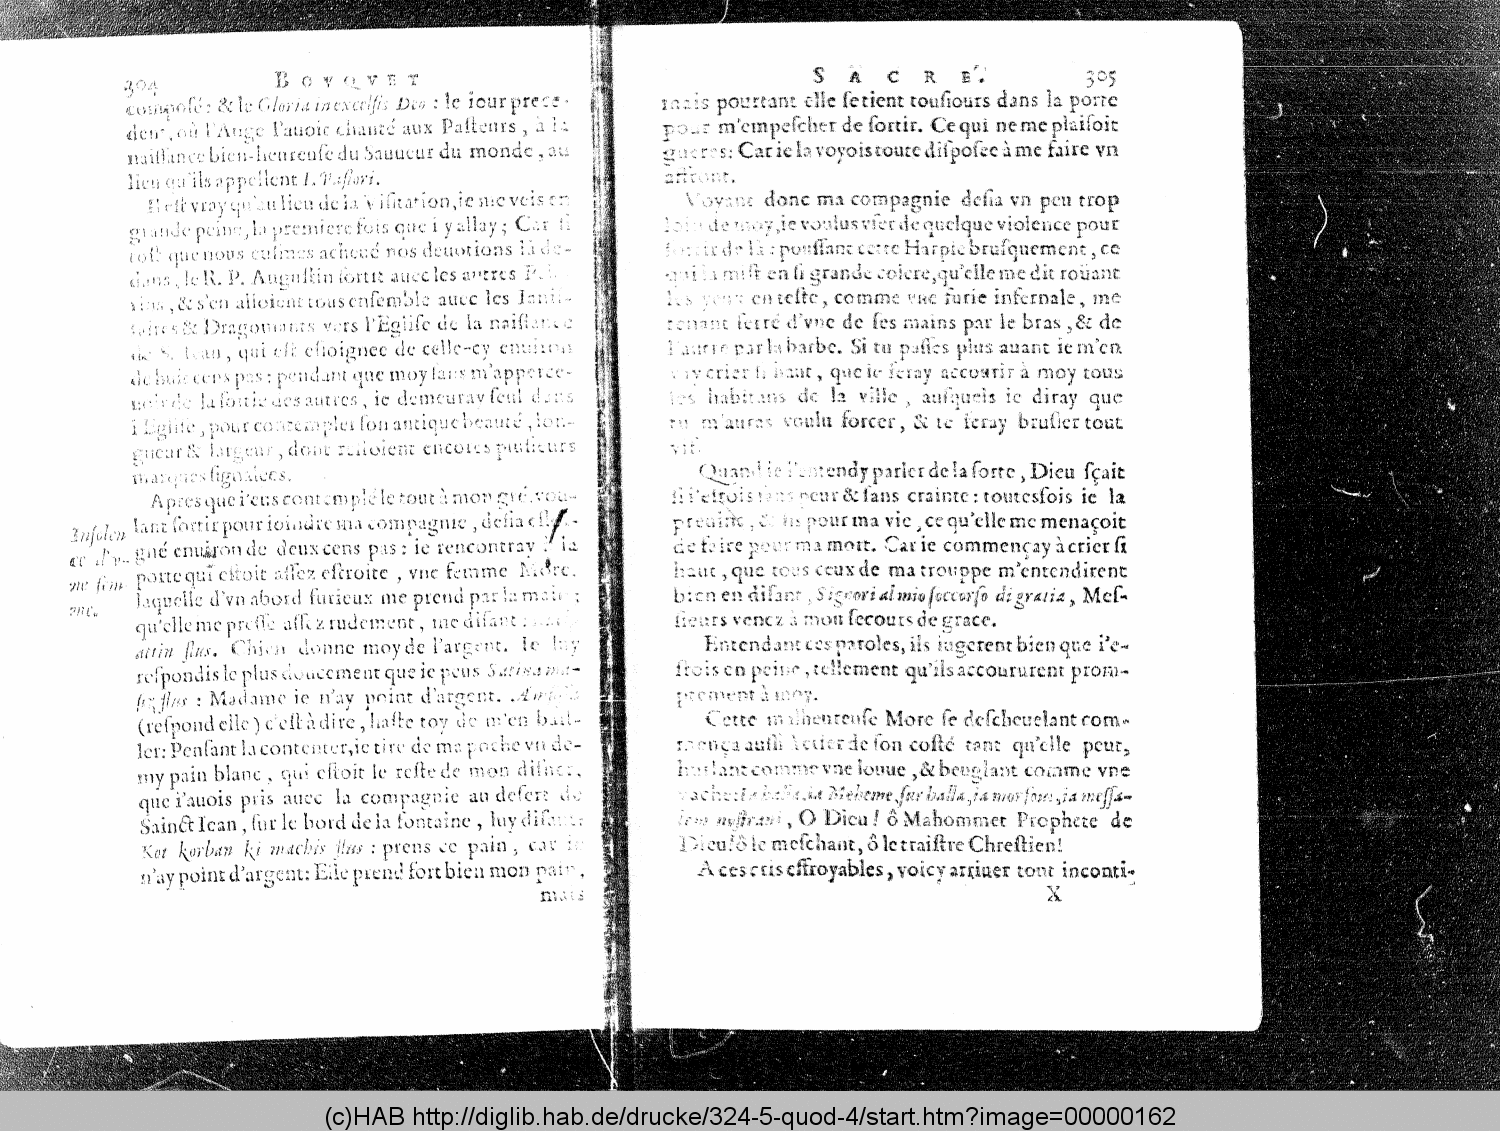 304 BOVQVET
composé: & le Gloria in excelsis Deo : le iour prece-
dent, où l'Ange l'auoit chanté aux Pasteurs, à la
naissance bien-heureuse du Sauueur du monde, au
lieu qu'ils appellent I. Pastori.
Il est vray qu'au lieu de la Visitation, ie me veis en
grande peine, la premiere fois que i'y allay; Car si
tost que nous eusmes acheué nos deuotions là de-
dans, le R. P. Augustin sortit auec les autres Pele-
rins, & s'en alloient tous ensemble auec les Janis-
saires & Dragomants vers l'Eglise de la naissance
de S. Iean, qui est esloignee de celle-cy enuiron
de huit cens pas: pendant que moy sans m'apperce-
uoir de la sortie des autres, ie demeuray seul dans
l'Eglise, pour contempler son antique beauté, lon-
gueur & largeur, dont restoient encores plusieurs
marques signalees.
Apres que i'eus contemplé le tout à mon gré, vou-
lant sortir pour ioindre ma compagnie, desia esloi-
gné enuiron de deux cens pas: ie rencontray à la
porte qui estoit assez estroite, vne femme More,
laquelle d'vn abord furieux me prend par la main;
qu'elle me presse assez rudement, me disant:
attin flus. Chien donne moy de l'argent. Ie luy
respondis le plus doucement que ie peus
flus : Madame ie n'ay point d'argent.
(respond elle) c'est à dire, haste toy de m'en bail-
ler: Pensant la contenter, ie tire de ma poche vn de-
my pain blanc, qui estoit le reste de mon disner,
que i'auois pris auec la compagnie au desert de
Sainct Iean, sur le bord de la fontaine, luy disant:
Kot korban ki machis flus : prens ce pain, car ie
n'ay point d'argent: Elle prend fort bien mon pain,
mais
Insolen
ce d'v-
ne fem
me.
SACRE'. 305
mais pourtant elle se tient tousiours dans la porte
pour m'empescher de sortir. Ce qui ne me plaisoit
gueres: Car ie la voyois toute disposee à me faire vn
affront.
Voyant donc ma compagnie desia vn peu trop
loin de moy, ie voulus vser de quelque violence pour
sortir de là : poussant cette Harpie brusquement, ce
qui la mist en si grande colere, qu'elle me dit roüant
les yeux en teste, comme vne furie infernale, me
tenant serré d'vne de ses mains par le bras, & de
l'autre par la barbe. Si tu passes plus auant ie m'en
vay crier si haut, que ie feray accourir à moy tous
les habitans de la ville, ausquels ie diray que
tu m'auras voulu forcer, & te feray brusler tout
vif.
Quand ie l'entendy parler de la sorte, Dieu sçait
si i'estois sans peur & sans crainte: toutesfois ie la
preuins, & fis pour ma vie, ce qu'elle me menaçoit
de faire pour ma mort. Car ie commençay à crier si
haut, que tous ceux de ma trouppe m'entendirent
bien en disant, Signori al mio soccorso di gratia, Mes-
sieurs venez à mon secours de grace.
Entendant ces paroles, ils iugerent bien que i'e-
stois en peine, tellement qu'ils accoururent prom-
ptement à moy.
Cette malheureuse More se descheuelant com-
mença aussi à crier de son costé tant qu'elle peut,
hurlant comme vne louue, & beuglant comme vne
vache: Meheme, sur balla, ia mor sour, ia messa-
, O Dieu! ô Mahommet Prophete de
Dieu! ô le meschant, ô le traistre Chrestien!
A ces cris effroyables, voicy arriuer tout inconti-
X
(c)HAB http://diglib.hab.de/drucke/324-5-quod-4/start.htm?image=00000162